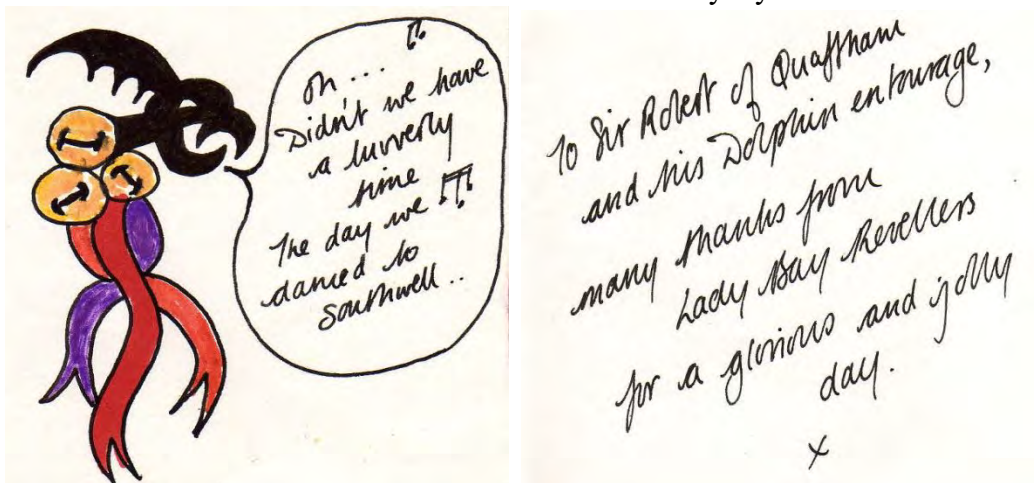 Oh...
Didn't we have
a luvverly
time
The day we
danced to
Southwell..
To Sir Robert of Quaffham
and his Dolphin entourage,
many thanks from
Lady Bay Revellers
for a glorious and jolly
day.
x